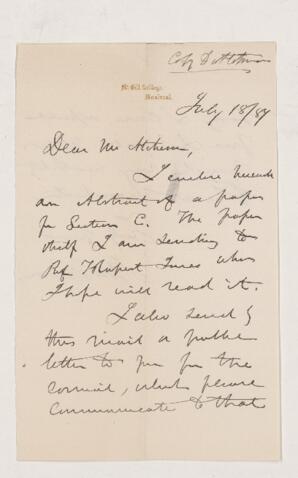 McGill College,
Montreal.
July 18/87
Dear Mr
I enclose herewith
an Abstract of a paper
for Section C. The paper
itself I am sending to
Prof T Rupert Jones who
I hope will read it.
I also send by
this mail a
letter to you for the
council, which please
communicate to that